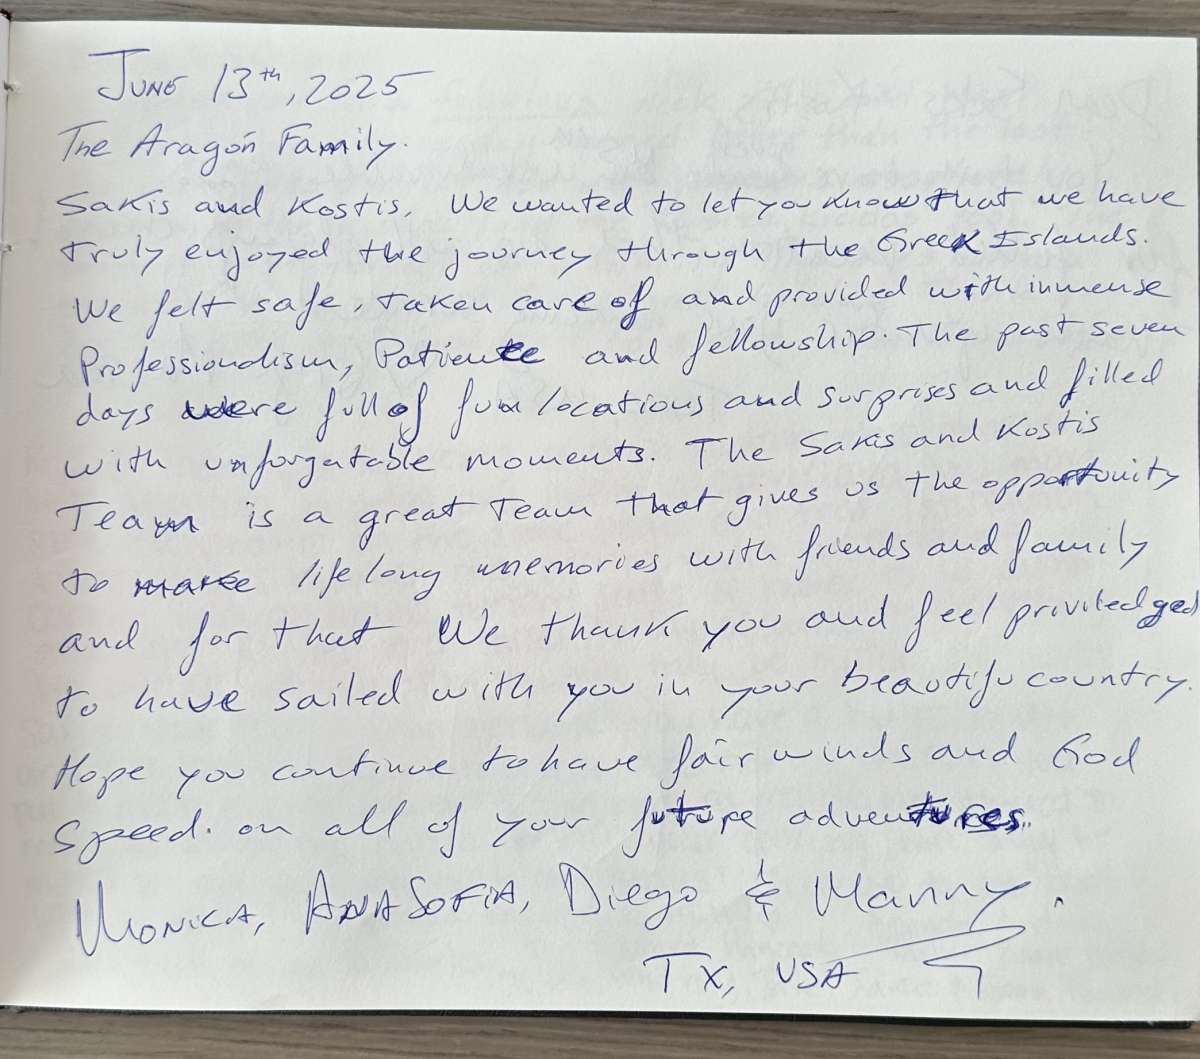 June 13th, 2025
The Aragón Family.
Sakis and Kostis, We wanted to let you know that we have
truly enjoyed the journey through the Greek Islands.
We felt safe, taken care of and provided with inmense
Professionalism, Patience and fellowship. The past seven
days were full of fun locations and surprises and filled
with unforgatable moments. The Sakis and Kostis
Team is a great Team that gives us the opportunity
to make lifelong memories with friends and family
and for that We thank you and feel priviledged
to have sailed with you in your beautifu country.
Hope you continue to have fair winds and God
Speed. on all of your future adventures.
Monica, AnaSofia, Diego & Manny.
TX, USA